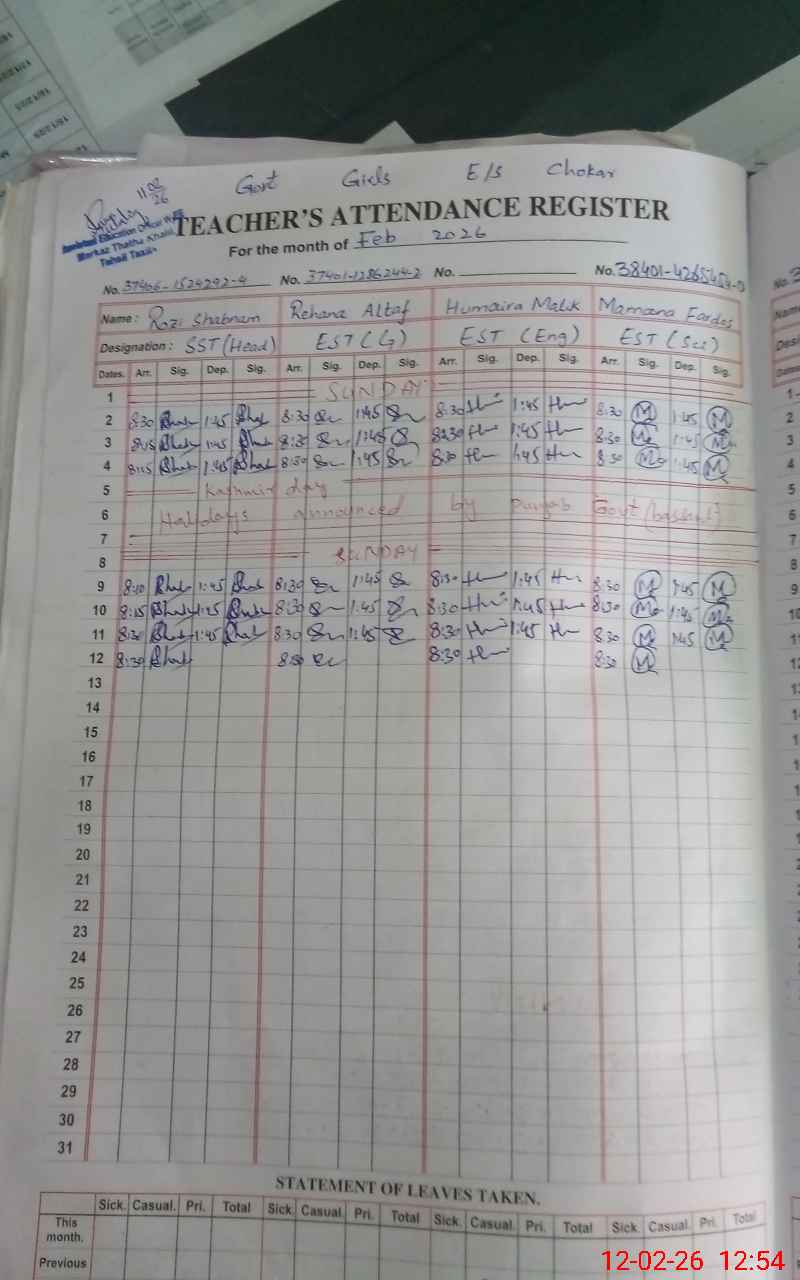 Govt Girls E/S Chokar
11-02-26
Assistant Education Officer
Markaz Thatha Khalil
Tehsil Taxila
TEACHER'S ATTENDANCE REGISTER
For the month of Feb 2026
No. 37406-1524292-4 No. 37401-1286244-2 No. No. 38401-4265454-0
Name: Rozi Shabnam Rehana Altaf Humaira Malik
Designation: SST (Head) EST (G) EST (Eng) EST (Sci)
Dates. Arr. Sig. Dep. Sig. Arr. Sig. Dep. Sig. Arr. Sig. Dep. Sig. Arr. Sig. Dep. Sig.
1 SUNDAY
2 8:30 1:45 8:30 1:45 8:30 1:45 8:30 1:45
3 8:15 1:45 8:30 1:45 8:30 1:45 8:30 1:45
4 8:15 1:45 8:30 1:45 8:30 1:45 8:30 1:45
5 Kashmir day
6 Holidays announced by Punjab Govt (basant)
7
8 SUNDAY
9 8:10 1:45 8:30 1:45 8:30 1:45 8:30 1:45
10 8:15 8:30 1:45 8:30 1:45 8:30 1:45
11 8:30 1:45 8:30 1:45 8:30 1:45 8:30 1:45
12 8:30 8:30 8:30 8:30
13
14
15
16
17
18
19
20
21
22
23
24
25
26
27
28
29
30
31
STATEMENT OF LEAVES TAKEN.
Sick. Casual. Pri. Total Sick. Casual. Pri. Total Sick. Casual. Pri. Total Sick. Casual. Pri. Total
This month.
Previous
12-02-26 12:54